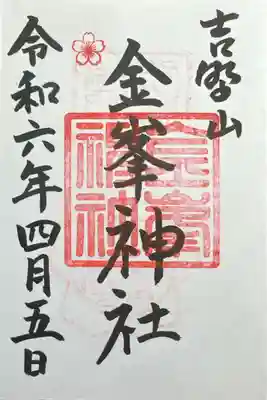 吉野山
金峯神社
令和六年四月五日
金峯神社